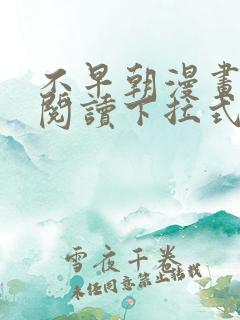 不早朝漫畫
閱讀下拉式
雪夜千卷
未经同意禁止转载